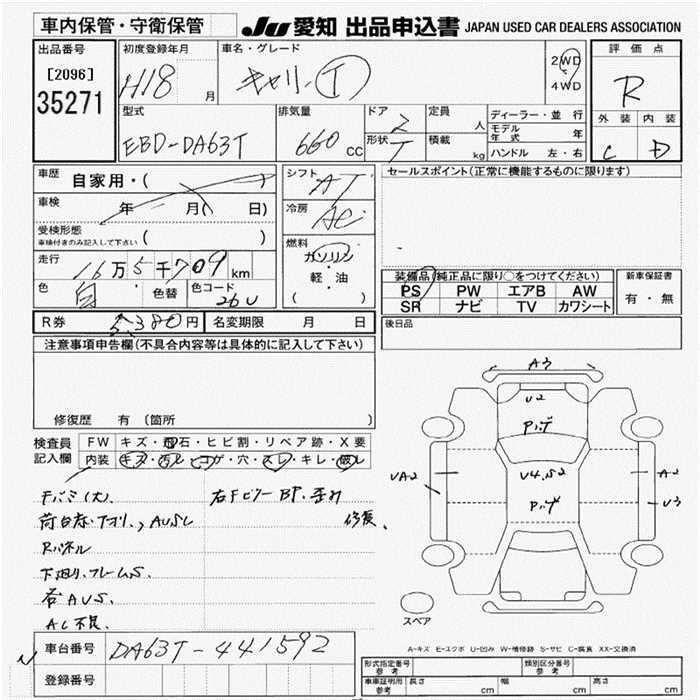 車内保管・守衛保管
JU 愛知 出品申込書 JAPAN USED CAR DEALERS ASSOCIATION
出品番号 初度登録年月 車名・グレード 2WD 評価点
[2096] H18 月 キャリー T 4WD R
35271
型式 排気量 ドア 2 定員 人 ディーラー・並行 外装 内装
EBD-DA63T 660 CC 形状 T 積載 kg モデル年式 年 C D
ハンドル 左・右
車歴 自家用・( シフト AT セールスポイント(正常に機能するものに限ります)
車検 年 月( 日) 冷房 AC
受検形態 ( )
車検付きのみ記入して下さい
燃料 ガソリン・軽・油 ( )
走行 16万5千709km
色 白 色替 色コード 26U
装備品(純正品に限り○をつけてください) 新車保証書
PS PW エアB AW 有・無
SR ナビ TV カワシート
R券 円 名変期限 月 日 後日品
注意事項申告欄(不具合内容等は具体的に記入して下さい)
修復歴 有 (箇所 )
検査員記入欄 FW キズ・飛石・ヒビ割・リペア跡・X要
内装 キズ・汚レ・コゲ・穴・スレ・キレ・破レ
A3
U2
Pハゲ
UA2 U4.S2 A2
Pハゲ U3
Fバミ(大)、 右Fピラー BP.歪み
荷台赤.下廻り、AUSC 修復、
Rパネル
下廻り.フレームS.
各AUS.
AC不良.
スペア
A-キズ E-エクボ U-凹み W-補修跡 S-サビ C-腐食 XX-交換済
車台番号 DA63T-441592
登録番号
形式指定番号 参考 類別区分番号 参考
車車証明用 参考 長さ cm 幅 cm 高さ cm